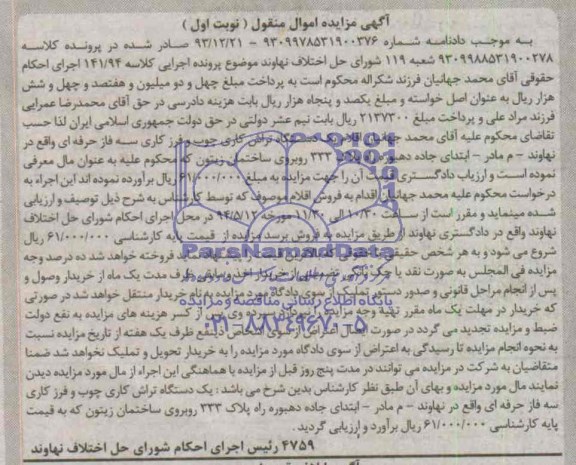 آگهی مزایده اموال منقول ( نوبت اول )
به موجب دادنامه شماره ۹۳۰۹۹۷۸۵۳۱۹۰۰۳۷۶ - ۹۳/۱۲/۲۱ صادر شده در پرونده کلاسه
۹۳۰۹۹۸۸۵۳۱۹۰۰۲۷۸ شعبه ۱۱۹ شورای حل اختلاف نهاوند موضوع پرونده اجرایی کلاسه ۱۴۱/۹۴ اجرای احکام
حقوقی آقای محمد جهانیان فرزند شکراله محکوم است به پرداخت مبلغ چهل و دو میلیون و هفتصد و چهل و شش
هزار ریال به عنوان اصل خواسته و مبلغ یکصد و پنجاه هزار ریال بابت هزینه دادرسی در حق آقای محمدرضا عمرایی
فرزند مراد علی و پرداخت مبلغ ۲۱۳۷۳۰۰ ریال بابت نیم عشر دولتی در حق دولت جمهوری اسلامی ایران لذا حسب
تقاضای محکوم علیه آقای محمد جهانیان اقلام یک دستگاه تراش کاری چوب و فرز کاری سه فاز حرفه ای واقع در
نهاوند - م مادر - ابتدای جاده دهبوره راه پلاک ۳۳۳ روبروی ساختمان زیتون که محکوم علیه به عنوان مال معرفی
نموده است و ارزیاب دادگستری قیمت آن را جهت مزایده به مبلغ ۶۱/۰۰۰/۰۰۰ ریال برآورده نموده اند این اجراء به
درخواست محکوم علیه محمد جهانیان اقدام به فروش اقلام موصوف که توسط کارشناس به شرح ذیل توصیف و ارزیابی
شده مینماید و مقرر است از ساعت ۱۰/۳۰ الی ۱۱/۳۰ مورخه ۹۴/۵/۱۲ در محل اجرای احکام شورای حل اختلاف
نهاوند واقع در دادگستری نهاوند از طریق مزایده به فروش برسد مزایده از قیمت پایه کارشناسی ۶۱/۰۰۰/۰۰۰ ریال
شروع می شود و به هر شخص حقیقی فروخته خواهد شد ده درصد وجه
مزایده فی المجلس به صورت نقد یا چک ظرف مدت یک ماه از خریدار وصول و
پس از انجام مراحل قانونی و صدور دستور تملیک از سوی دادگاه مورد مزایده به نام خریدار منتقل خواهد شد در صورتی
که خریدار در مهلت یک ماه مقرر بقیه وجه مزایده را نپردازد سپرده وی پس از کسر هزینه های مزایده به نفع دولت
ضبط و مزایده تجدید می گردد در صورت اعتراض از سوی اشخاص ذینفع ظرف یک هفته از تاریخ مزایده نسبت
به نحوه انجام مزایده تا رسیدگی به اعتراض از سوی دادگاه مورد مزایده را به خریدار تحویل و تملیک نخواهد شد ضمنا
متقاضیان به شرکت در مزایده می توانند در مدت پنج روز قبل از مزایده با هماهنگی این اجراء از مال مورد مزایده دیدن
نمایند مال مورد مزایده و بهای آن طبق نظر کارشناس بدین شرح می باشد : یک دستگاه تراش کاری چوب و فرز کاری
سه فاز حرفه ای واقع در نهاوند - م مادر - ابتدای جاده دهبوره راه پلاک ۳۳۳ روبروی ساختمان زیتون که به قیمت
پایه کارشناسی ۶۱/۰۰۰/۰۰۰ ریال برآورد و ارزیابی گردید.
۴۷۵۹ رئیس اجرای احکام شورای حل اختلاف نهاوند
ParsNamadData
پایگاه اطلاع رسانی مناقصه و مزایده
۰۲۱-۸۸۳۴۹۶۷۰-۵